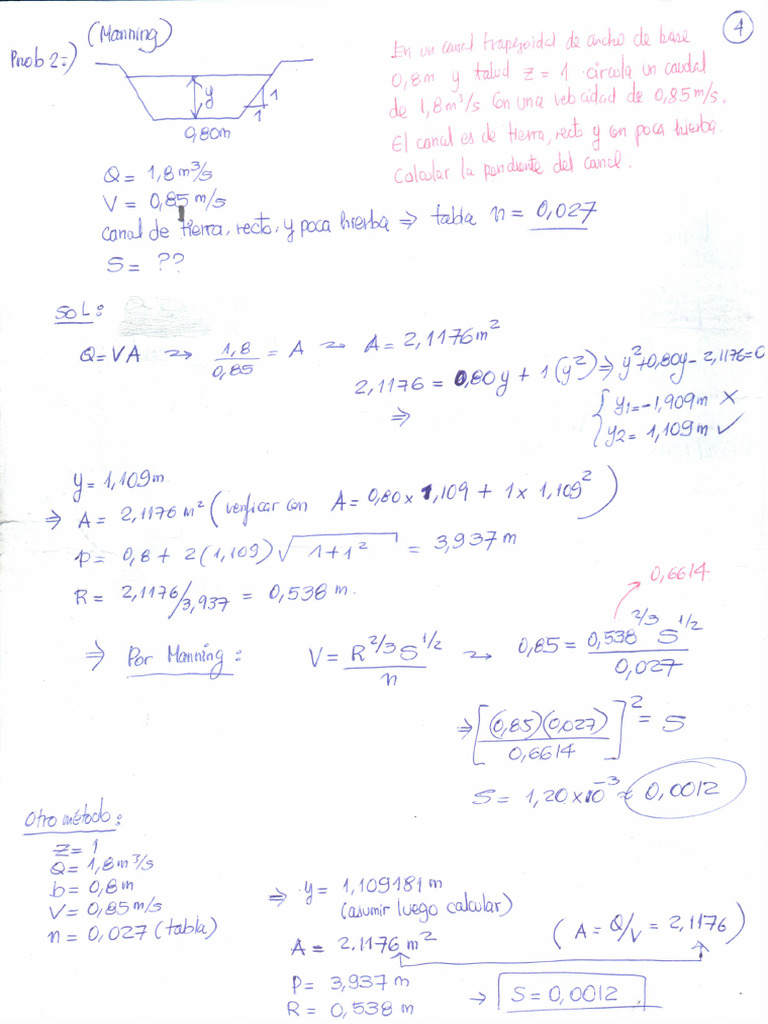 4
Prob 2:) (Manning)
En un canal trapezoidal de ancho de base
0,8m y talud z = 1 circula un caudal
de 1,8 m³/s con una velocidad de 0,85 m/s.
El canal es de tierra, recto y con poca hierba.
Calcular la pendiente del canal.
y
1
1
0,80m
Q = 1,8 m³/s
V = 0,85 m/s
canal de tierra, recto, y poca hierba ⇒ tabla n = 0,027
S = ??
SOL:
Q = VA → 1,8/0,85 = A → A = 2,1176 m²
2,1176 = 0,80y + 1(y²) ⇒ y²+0,80y - 2,1176=0
⇒ { y1 = -1,909 m ✗
y2 = 1,109 m ✓
y = 1,109m
⇒ A = 2,1176 m² (verificar con A = 0,80 x 1,109 + 1 x 1,109²)
P = 0,8 + 2(1,109)√(1+1²) = 3,937 m
R = 2,1176/3,937 = 0,538 m.
0,6614
⇒ Por Manning: V = R^2/3 S^1/2 / n → 0,85 = 0,538^2/3 S^1/2 / 0,027
⇒ [(0,85)(0,027) / 0,6614]² = S
S = 1,20 x 10⁻³ ≈ 0,0012
Otro método:
Z = 1
Q = 1,8 m³/s
b = 0,8m
V = 0,85 m/s
n = 0,027 (tabla)
⇒ y = 1,109181 m
(asumir luego calcular)
A = 2,1176 m² (A = Q/V = 2,1176)
P = 3,937 m
R = 0,538 m → S = 0,0012